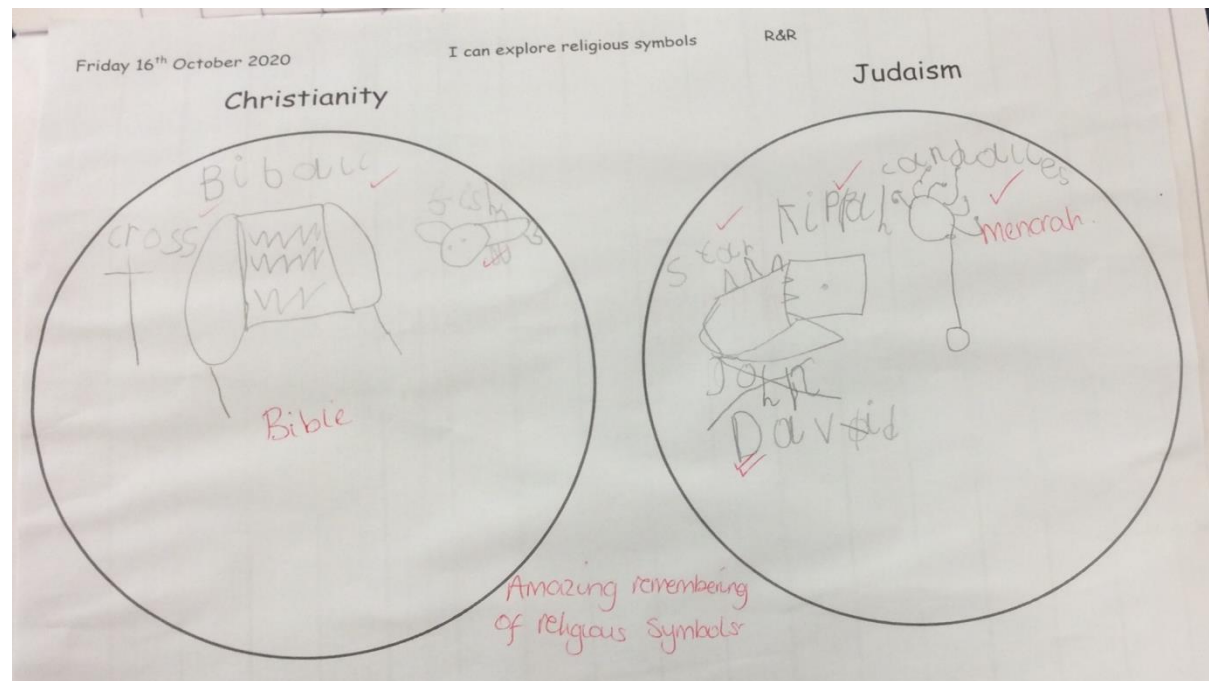 Friday 16th October 2020
I can explore religious symbols
R&R
Christianity
Judaism
Biball
cross
fish
Bible
candalles
Kippah
menorah.
Star
John
David
Amazing remembering
of religious symbols